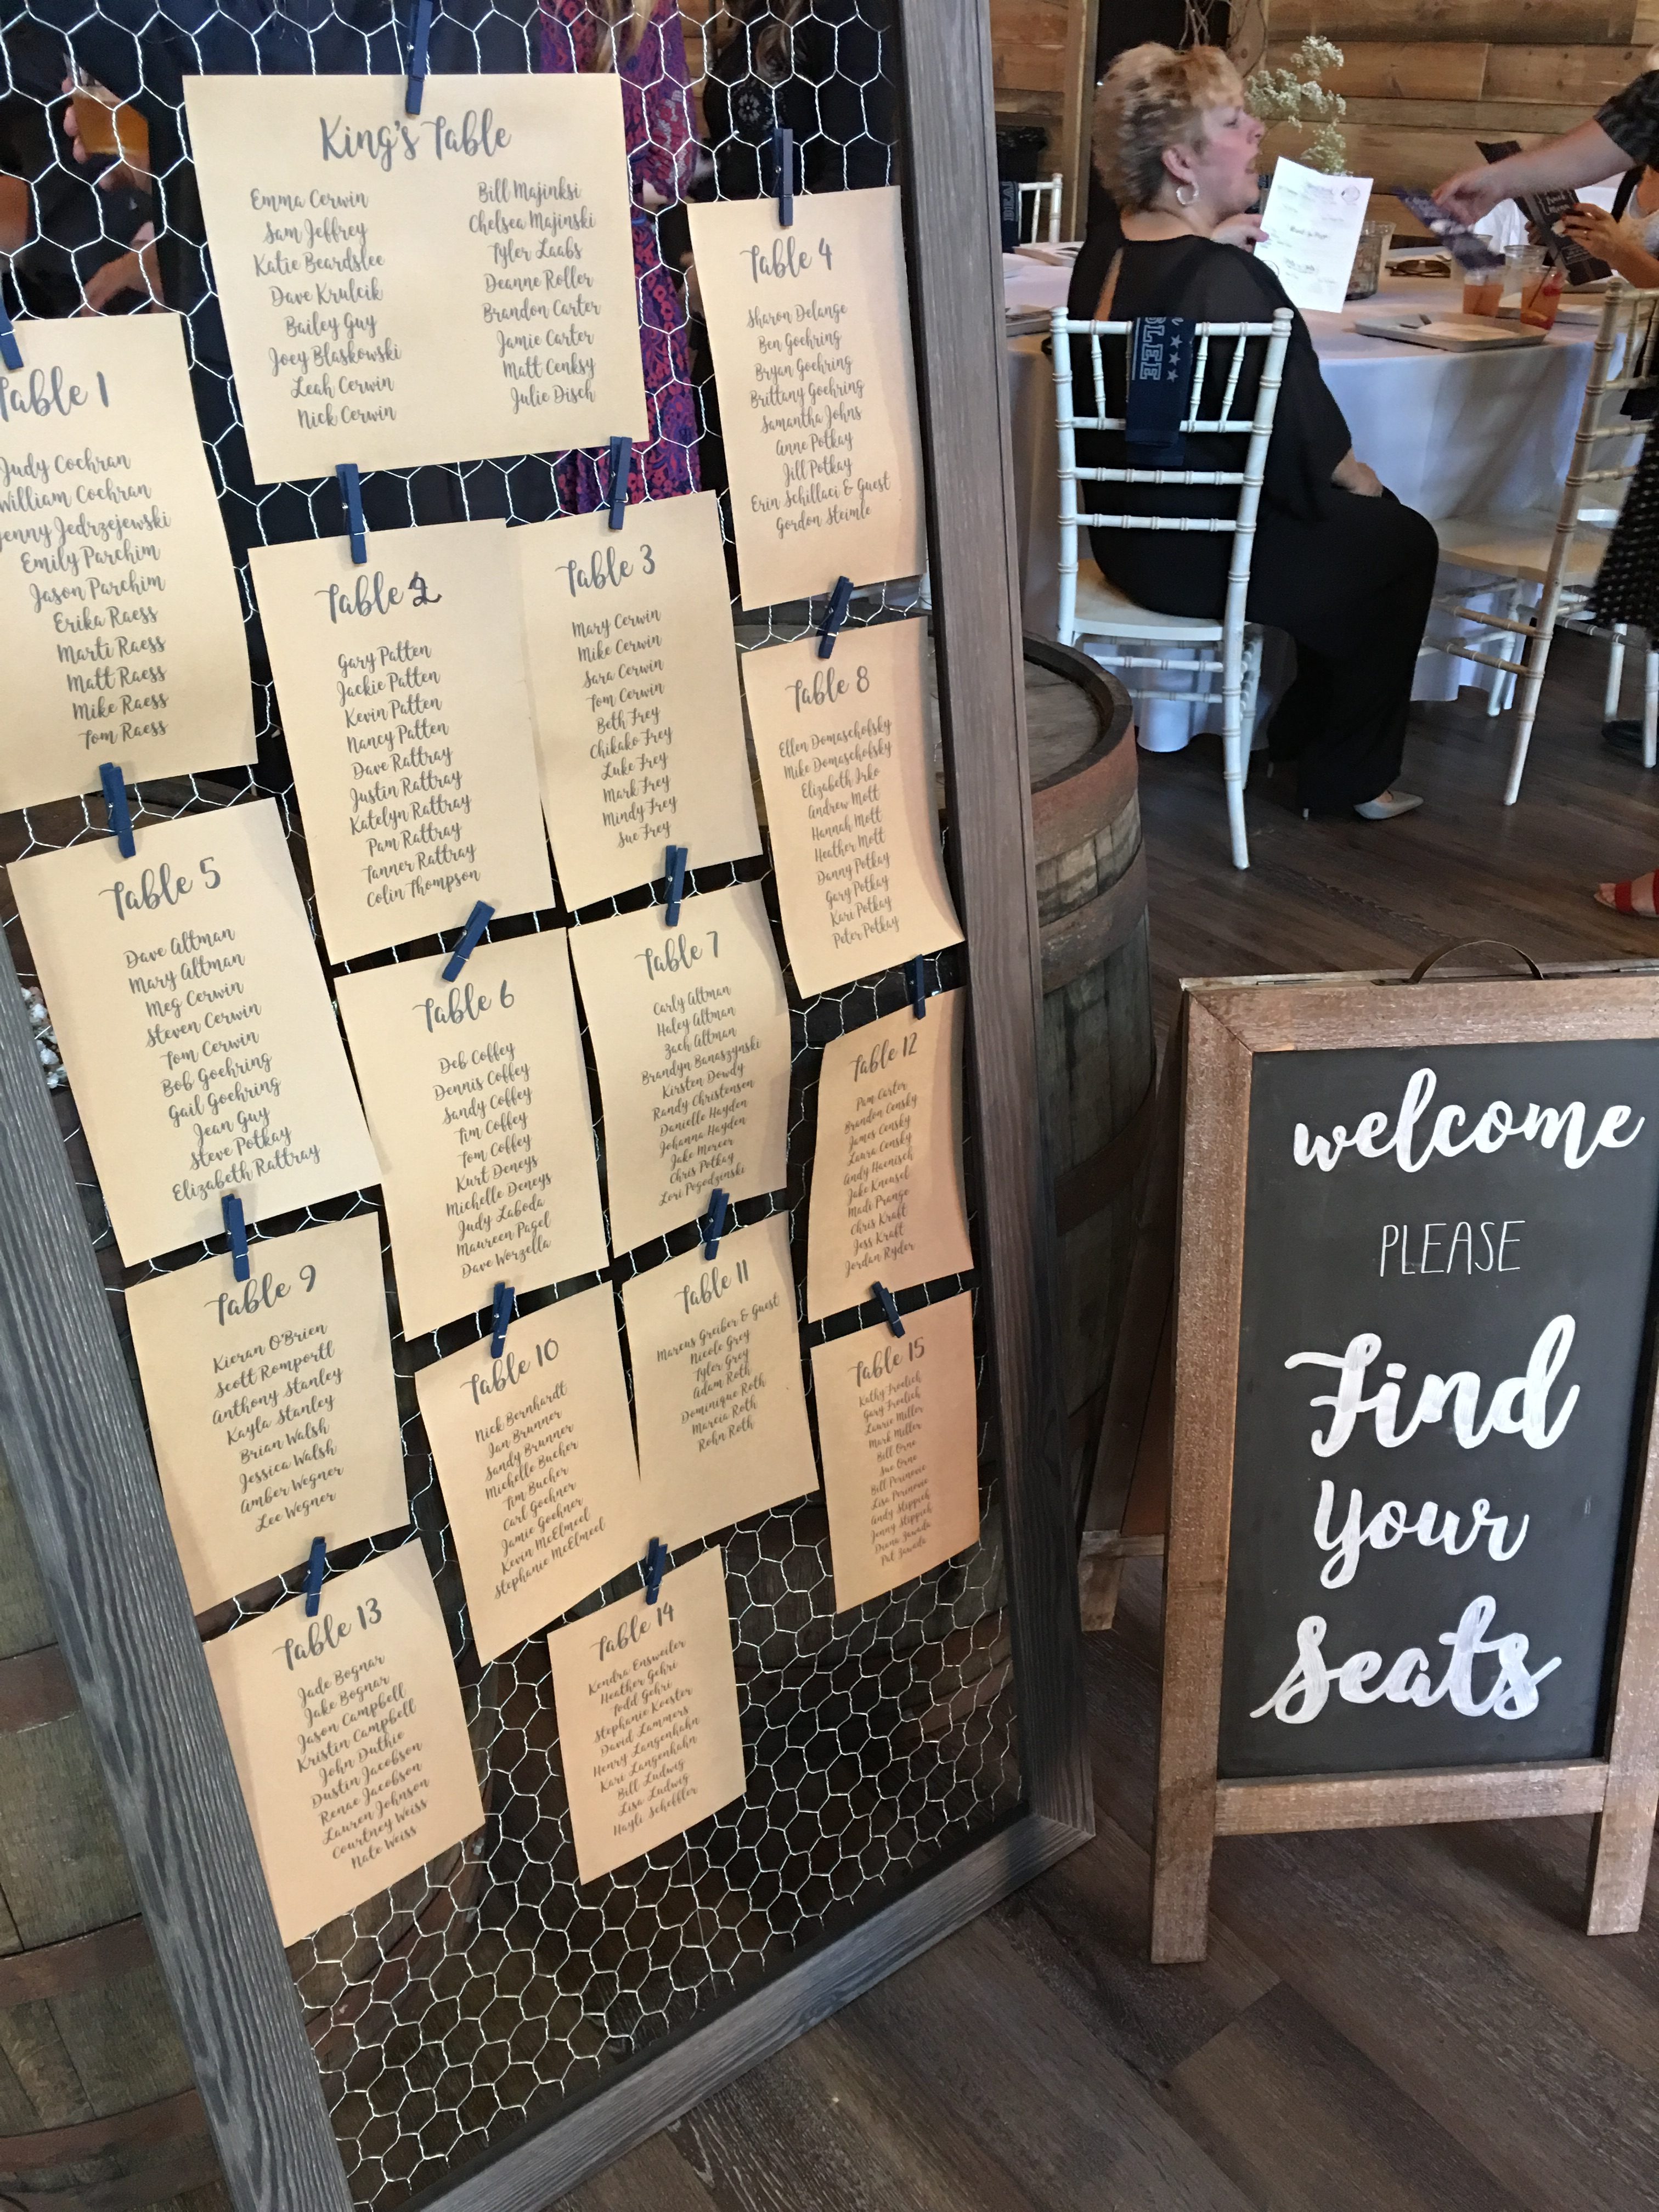 King's Table
Emma Cerwin
Sam Jeffrey
Katie Beardslee
Dave Krulcik
Bailey Guy
Joey Blaskowski
Leah Cerwin
Nick Cerwin
Bill Majinksi
Chelsea Majinski
Tyler Laabs
Deanne Roller
Brandon Carter
Jamie Carter
Matt Cenksy
Julie Disch
Table 1
Judy Cochran
William Cochran
Jenny Jedrzejewski
Emily Parchim
Jason Parchim
Erika Raess
Marti Raess
Matt Raess
Mike Raess
Tom Raess
Table 2
Gary Patten
Jackie Patten
Kevin Patten
Nancy Patten
Dave Rattray
Justin Rattray
Katelyn Rattray
Pam Rattray
Tanner Rattray
Colin Thompson
Table 3
Mary Cerwin
Mike Cerwin
Sara Cerwin
Tom Cerwin
Beth Frey
Chikako Frey
Luke Frey
Mark Frey
Mindy Frey
Sue Frey
Table 4
Sharon Delange
Ben Goehring
Bryan Goehring
Brittany Goehring
Samantha Johns
Anne Potkay
Jill Potkay
Erin Schillaci & Guest
Gordon Steimle
Table 5
Dave Altman
Mary Altman
Meg Cerwin
Steven Cerwin
Tom Cerwin
Bob Goehring
Gail Goehring
Jean Guy
Steve Potkay
Elizabeth Rattray
Table 6
Deb Coffey
Dennis Coffey
Sandy Coffey
Tim Coffey
Tom Coffey
Kurt Deneys
Michelle Deneys
Judy Laboda
Maureen Pagel
Dave Worzella
Table 7
Carly Altman
Haley Altman
Zach Altman
Brandyn Banaszynski
Kirsten Dowdy
Randy Christenson
Danielle Hayden
Johanna Hayden
Jake Mercer
Chris Potkay
Lori Pogodzinski
Table 8
Ellen Domaschofsky
Mike Domaschofsky
Elizabeth Irko
Andrew Mott
Hannah Mott
Heather Mott
Danny Potkay
Gary Potkay
Kari Potkay
Peter Potkay
Table 9
Kieran O'Brien
Scott Romportl
Anthony Stanley
Kayla Stanley
Brian Walsh
Jessica Walsh
Amber Wegner
Lee Wegner
Table 10
Nick Bernhardt
Jan Brunner
Sandy Brunner
Michelle Bucher
Tim Bucher
Carl Goehner
Jamie Goehner
Kevin McElmeel
Stephanie McElmeel
Table 11
Marcus Greiber & Guest
Nicole Grey
Tyler Grey
Adam Roth
Dominique Roth
Marcia Roth
Rohn Roth
Table 12
Pam Carter
Brandon Censky
James Censky
Laura Censky
Andy Haenisch
Jake Kneusel
Madi Prange
Chris Kraft
Jess Kraft
Jordan Ryder
Table 13
Jade Bognar
Jake Bognar
Jason Campbell
Kristin Campbell
John Duthie
Dustin Jacobson
Renae Jacobson
Lauren Johnson
Courtney Weiss
Nate Weiss
Table 14
Kendra Ensweiler
Heather Gehri
Todd Gehri
Stephanie Koester
David Lammers
Henry Langenhahn
Kari Langenhahn
Bill Ludwig
Lisa Ludwig
Hayli Scheffler
Table 15
Kathy Froelich
Gary Froelich
Laurie Miller
Mark Miller
Bill Orne
Sue Orne
Bill Perinovic
Lisa Perinovic
Andy Steppich
Jenny Steppich
Diana Zawada
Pat Zawada
welcome
PLEASE
Find
Your
Seats